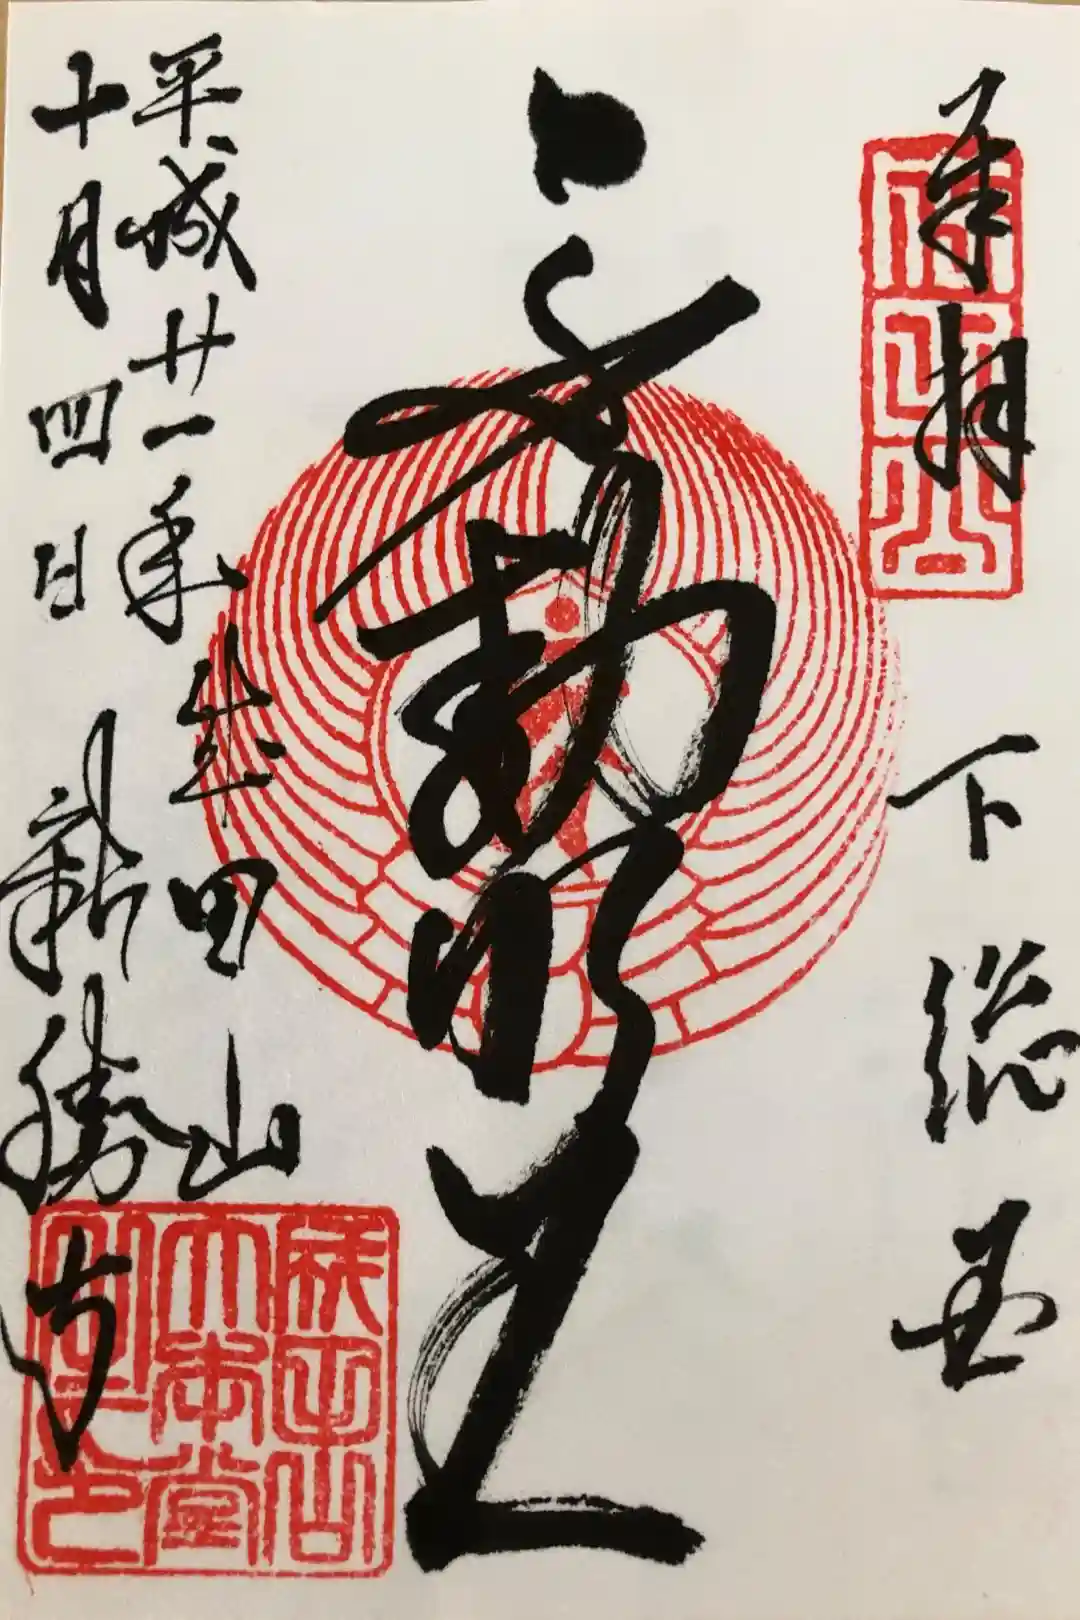 奉拝 下総国
不動明王
平成廿一年 成田山
十月四日 新勝寺
成田山
大本堂